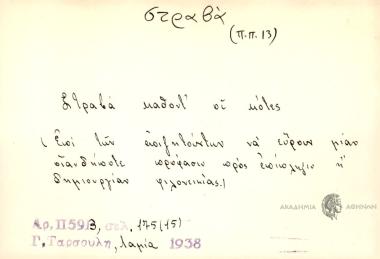 στραβά
(π.π. 13)
Στραβά καθοντ' οἱ κότες
(Ἐπὶ τῶν ἐπιζητούντων νὰ εὕρουν μίαν
οἱανδήποτε πρόφασιν πρὸς ἐπίπληξιν ἢ
δημιουργίαν φιλονεικίας.)
ΑΚΑΔΗΜΙΑ ΑΘΗΝΩΝ
Αρ. Π59Β, σελ. 175 (15)
Γ. Ταρσούλη, Λαμία 1938